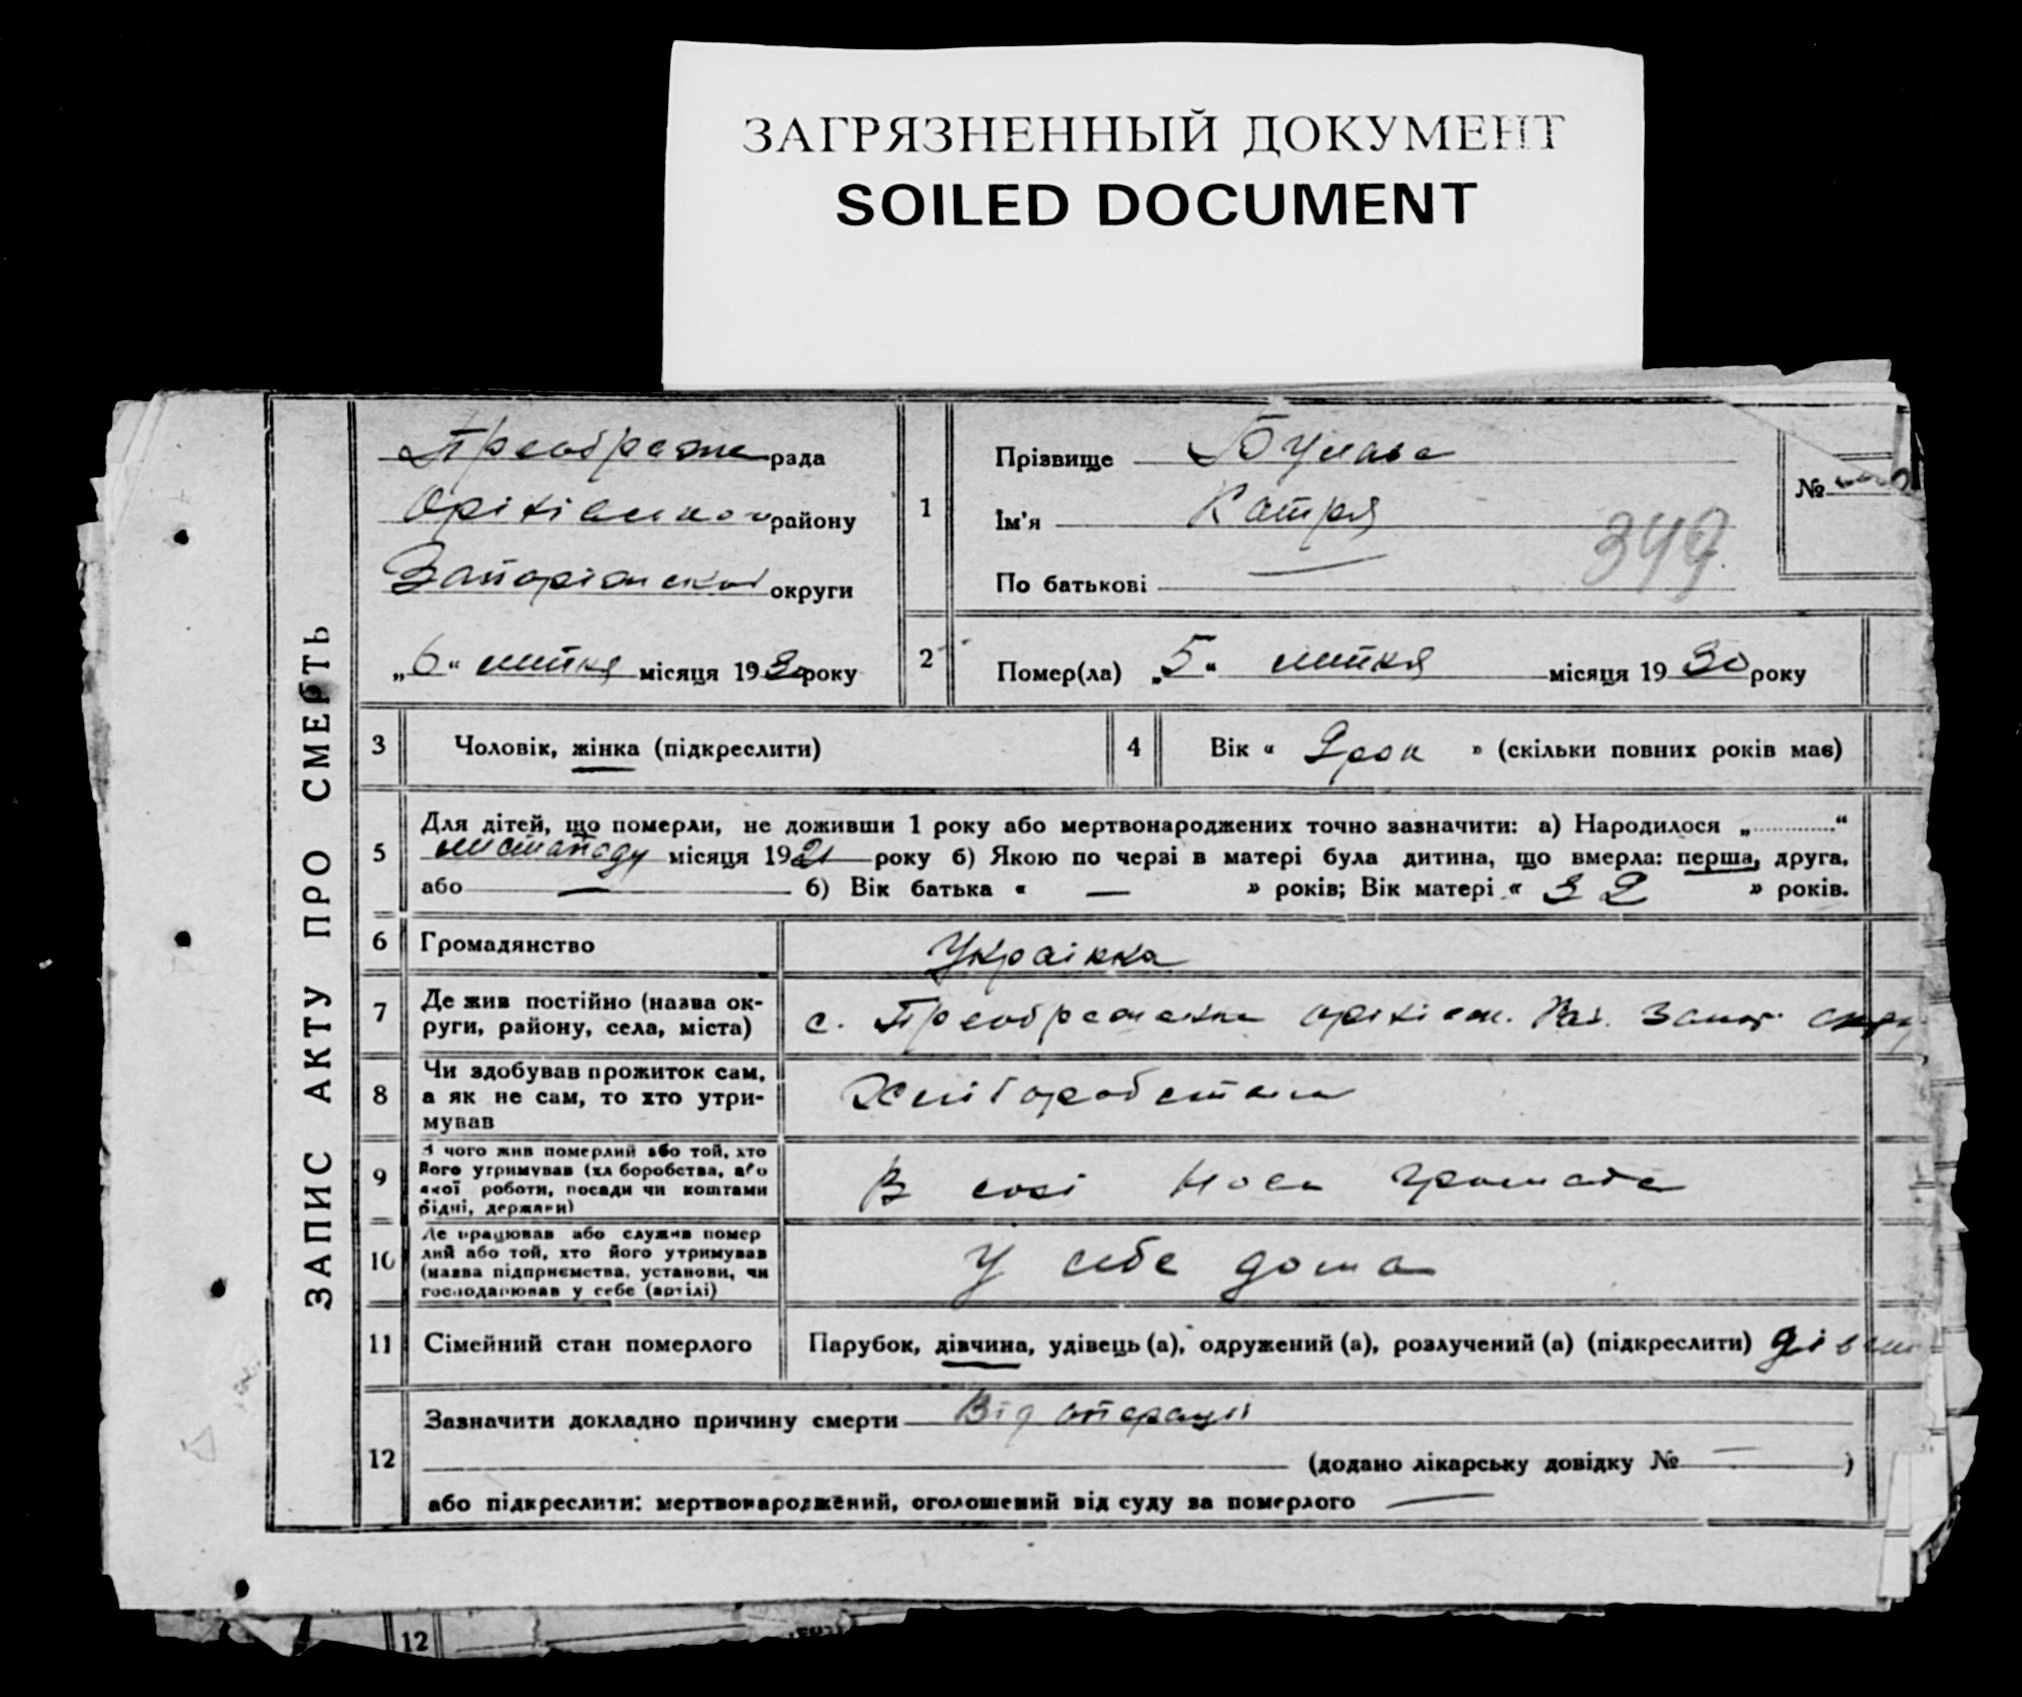 ЗАГРЯЗНЕННЫЙ ДОКУМЕНТ
SOILED DOCUMENT
ЗАПИС АКТУ ПРО СМЕРТЬ
Преображе рада
Оріхівського району
Запоріжської округи
„6“ липня місяця 1930 року
1
Прізвище Булава
Ім'я Катря
По батькові —
349
№
2
Помер(ла) „5“ липня місяця 1930 року
3
Чоловік, жінка (підкреслити)
4
Вік « » (скільки повних років має)
5
Для дітей, що померли, не доживши 1 року або мертвонароджених точно зазначити: а) Народилося „ “
листопаду місяця 1921 року б) Якою по черзі в матері була дитина, що вмерла: перша, друга,
або — б) Вік батька « — » років; Вік матері « 32 » років.
6
Громадянство
Українка
7
Де жив постійно (назва ок-
руги, району, села, міста)
с. Преображенка Оріхівск. Рай. Запор. окру
8
Чи здобував прожиток сам,
а як не сам, то хто утри-
мував
9
З чого жив померлий або той, хто
його утримував (хліборобства, або
якої роботи, посади чи коштами
рідні, держави)
В
10
Де працював або служив помер
лий або той, хто його утримував
(назва підприємства, установи, чи
господарював у себе (артілі)
У себе дома
11
Сімейний стан померлого
Парубок, дівчина, удівець (а), одружений (а), розлучений (а) (підкреслити) дівчи
12
Зазначити докладно причину смерти Від операції
(додано лікарську довідку № — )
або підкреслити: мертвонароджений, оголошений від суду за померлого —
12